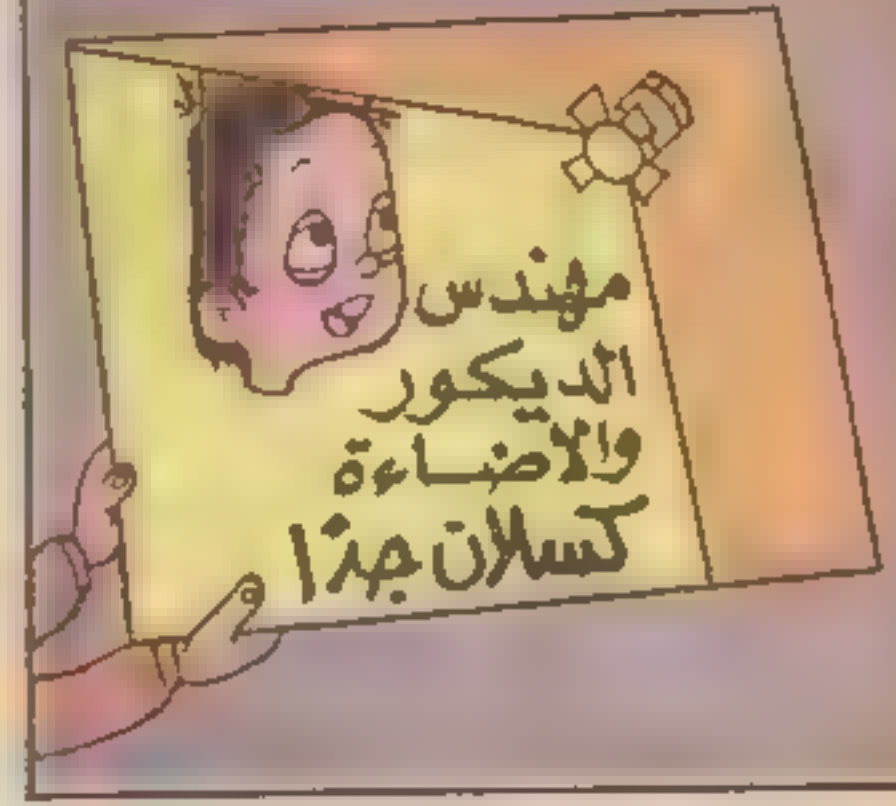 مهندس
الديكور
والاضاءة
كسلان جدا